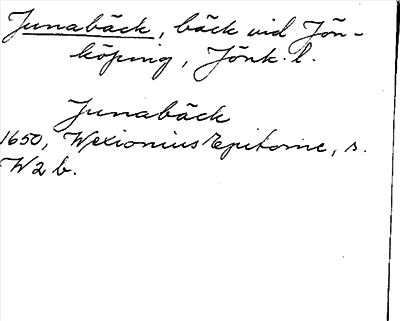 Junabäck, bäck vid Jön-
köping, Jönk. l.
Junabäck
1650, Wexionius Epitome, s.
W2 b.